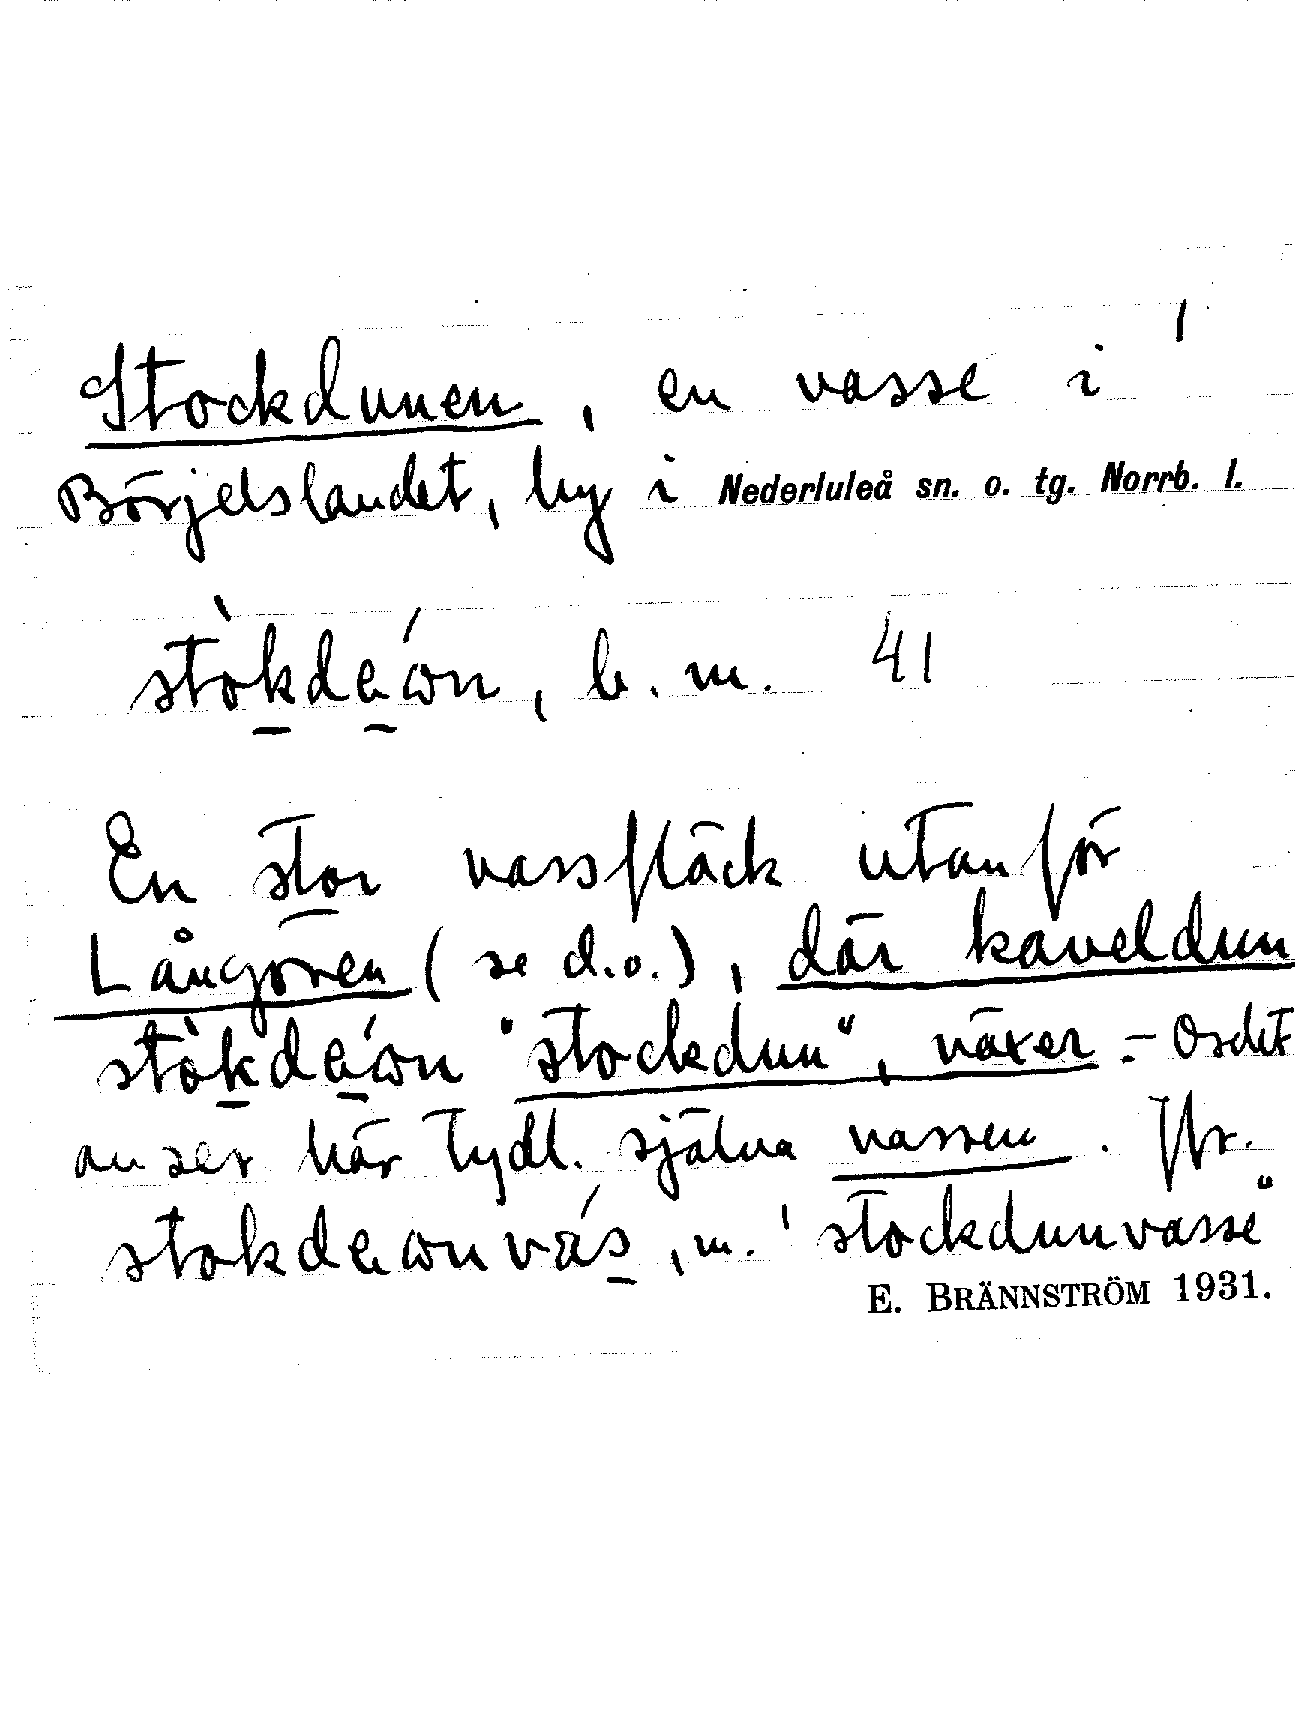 Stockdunen, en vasse i
Börjelslandet, by i Nederluleå sn. o. tg. Norrb. l.
b. m. 41
En stor vassfläck utanför
Långören (se d.o.), där kaveldun
"stockdun", växer – Ordet
anser här tydl. själva vassen. Jfr.
m. 'stockdunvasse"
E. BRÄNNSTRÖM 1931.